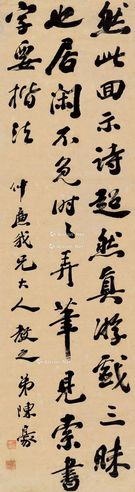 然此回示诗超然真游戏三昧
也居闲不免时时弄笔见索书
字要楷法
仲渔我兄大人教之 弟陈豪